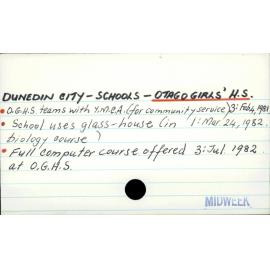 DUNEDIN CITY - SCHOOLS - OTAGO GIRLS' H.S.
• O.G.H.S. teams with Y.M.C.A. (for community service) 3: Feb 4, 1981
• School uses glass-house (in 1: Mar 24, 1982.
biology course)
• Full computer course offered 3: Jul. 1982
at O.G.H.S.
MIDWEEK